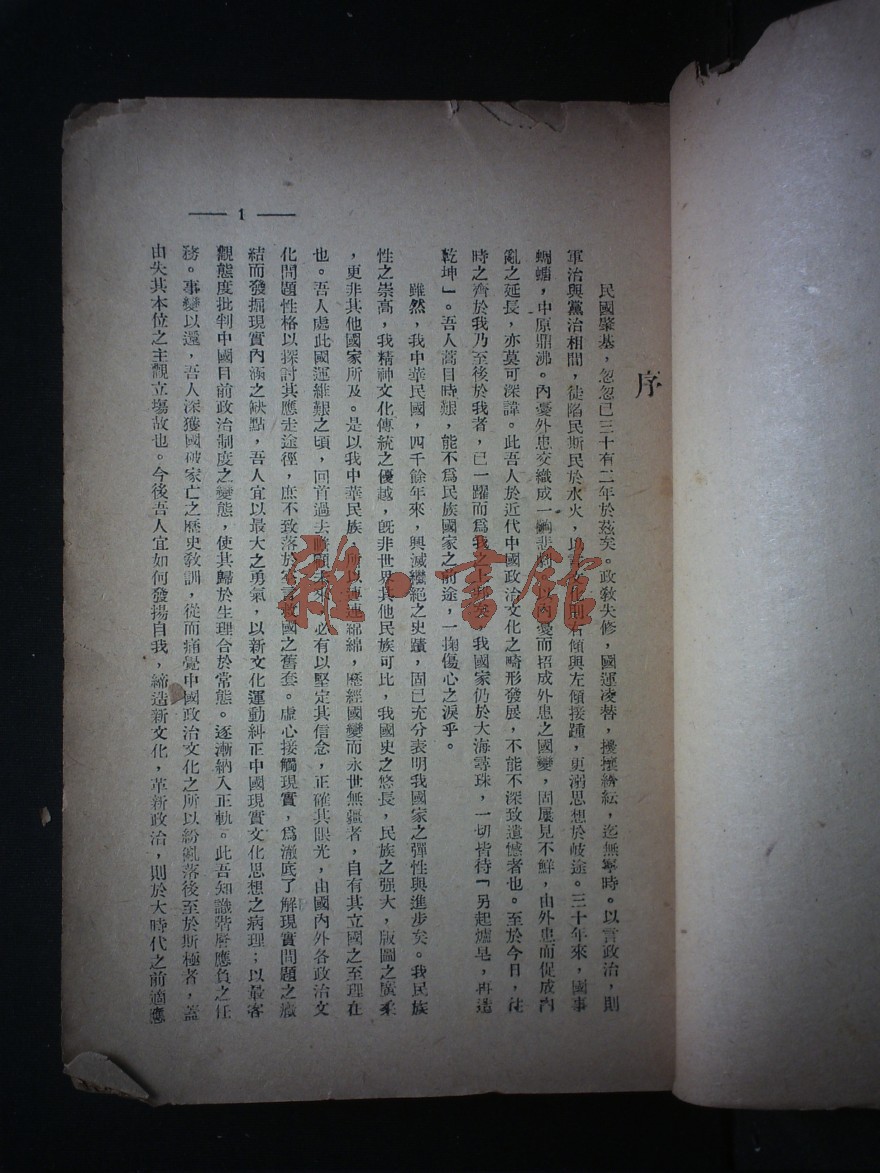 序
民國肇基，忽忽已三十有二年於茲矣。政敎失修，國運凌替，擾攘紛紜，迄無寧時。以言政治，則
軍治與黨治相間，徒陷民斯民於水火，以 文化則右傾與左傾接踵，更溺思想於歧途。三十年來，國事
蜩螗，中原鼎沸。內憂外患交織成一齣悲劇，以內憂而招成外患之國變，固屢見不鮮，由外患而促成內
亂之延長，亦莫可深諱。此吾人於近代中國政治文化之畸形發展，不能不深致遺憾者也。至於今日，往
時之齊於我乃至後於我者，已一躍而爲我之上邦矣，我國家仍於大海尋珠，一切皆待「另起爐皂，再造
乾坤」。吾人蒿目時艱，能不爲民族國家之前途，一掬傷心之淚乎。
雖然，我中華民國，四千餘年來，興滅繼絕之史蹟，固已充分表明我國家之彈性與進步矣。我民族
性之崇高，我精神文化傳統之優越，旣非世界其他民族可比，我國史之悠長，民族之强大，版圖之廣柔
，更非其他國家所及。是以我中華民族，所以連連綿綿，歷經國變而永世無疆者，自有其立國之至理在
也。吾人處此國運維艱之頃，回首過去瞻顧未來，必有以堅定其信念，正確其眼光，由國內外各政治文
化問題性格以探討其應走途徑，庶不致落於空言救國之舊套。虛心接觸現實，爲澈底了解現實問題之癥
結而發掘現實內涵之缺點，吾人宜以最大之勇氣，以新文化運動糾正中國現實文化思想之病理；以最客
觀態度批判中國目前政治制度之變態，使其歸於生理合於常態。逐漸納入正軌。此吾知識階層應負之任
務。事變以還，吾人深獲國破家亡之歷史敎訓，從而痛覺中國政治文化之所以紛亂落後至於斯極者，蓋
由失其本位之主觀立場故也。今後吾人宜如何發揚自我，締造新文化，革新政治，則於大時代之前適應
— 1 —
雜·書館